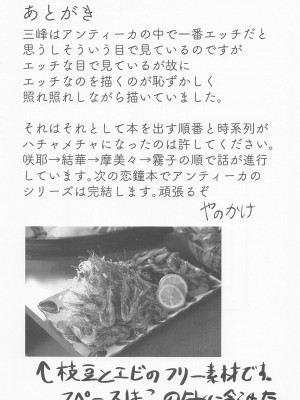 あとがき
三峰はアンティーカの中で一番エッチだと
思うしそういう目で見ているのですが
エッチな目で見ているが故に
エッチなのを描くのが恥ずかしく
照れ照れしながら描いていました。
それはそれとして本を出す順番と時系列が
ハチャメチャになったのは許してください。
咲耶→結華→摩美々→霧子の順で話が進行
しています。次の恋鐘本でアンティーカの
シリーズは完結します。頑張るぞ
やのかけ
↑枝豆とエビのフリー素材です。
スペースはこの